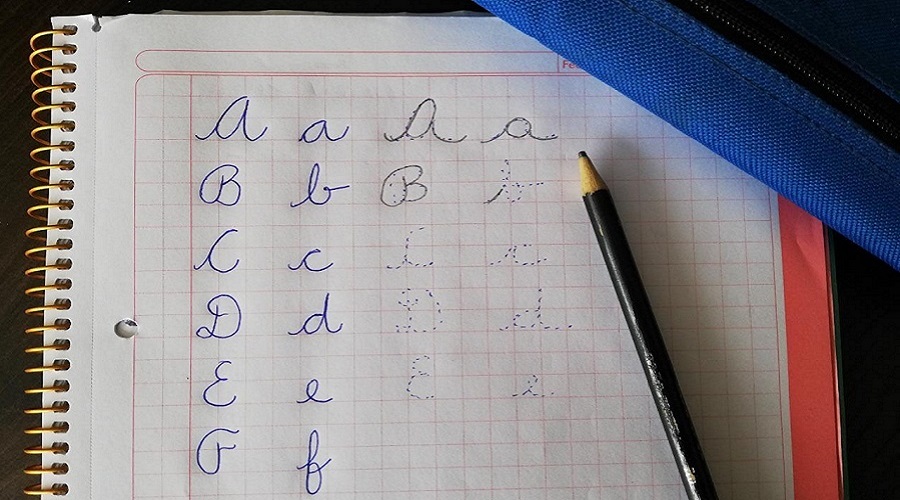 A a A a
B b B b
C c C c
D d D d
E e E e
F f